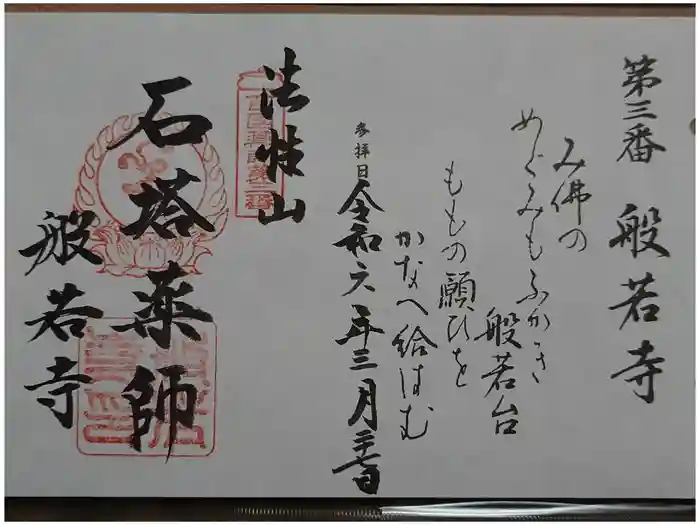 第三番 般若寺
み佛の
めぐみもふかき
般若台
ももの願ひを
かなへ給はむ
参拝日 令和六年三月二十七日
法性山
石塔薬師
般若寺